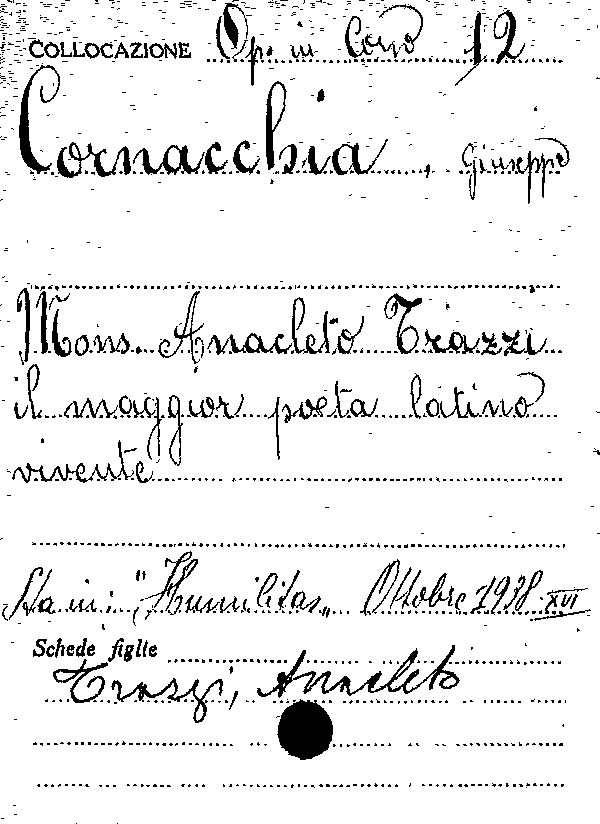 COLLOCAZIONE Op. in Corso 12
Cornacchia, Giuseppe
Mons. Anacleto Trazzi
il maggior poeta latino
vivente
Sta in: "Humilitas„ Ottobre 1938 - XVI
Schede figlie
Trazzi, Anacleto